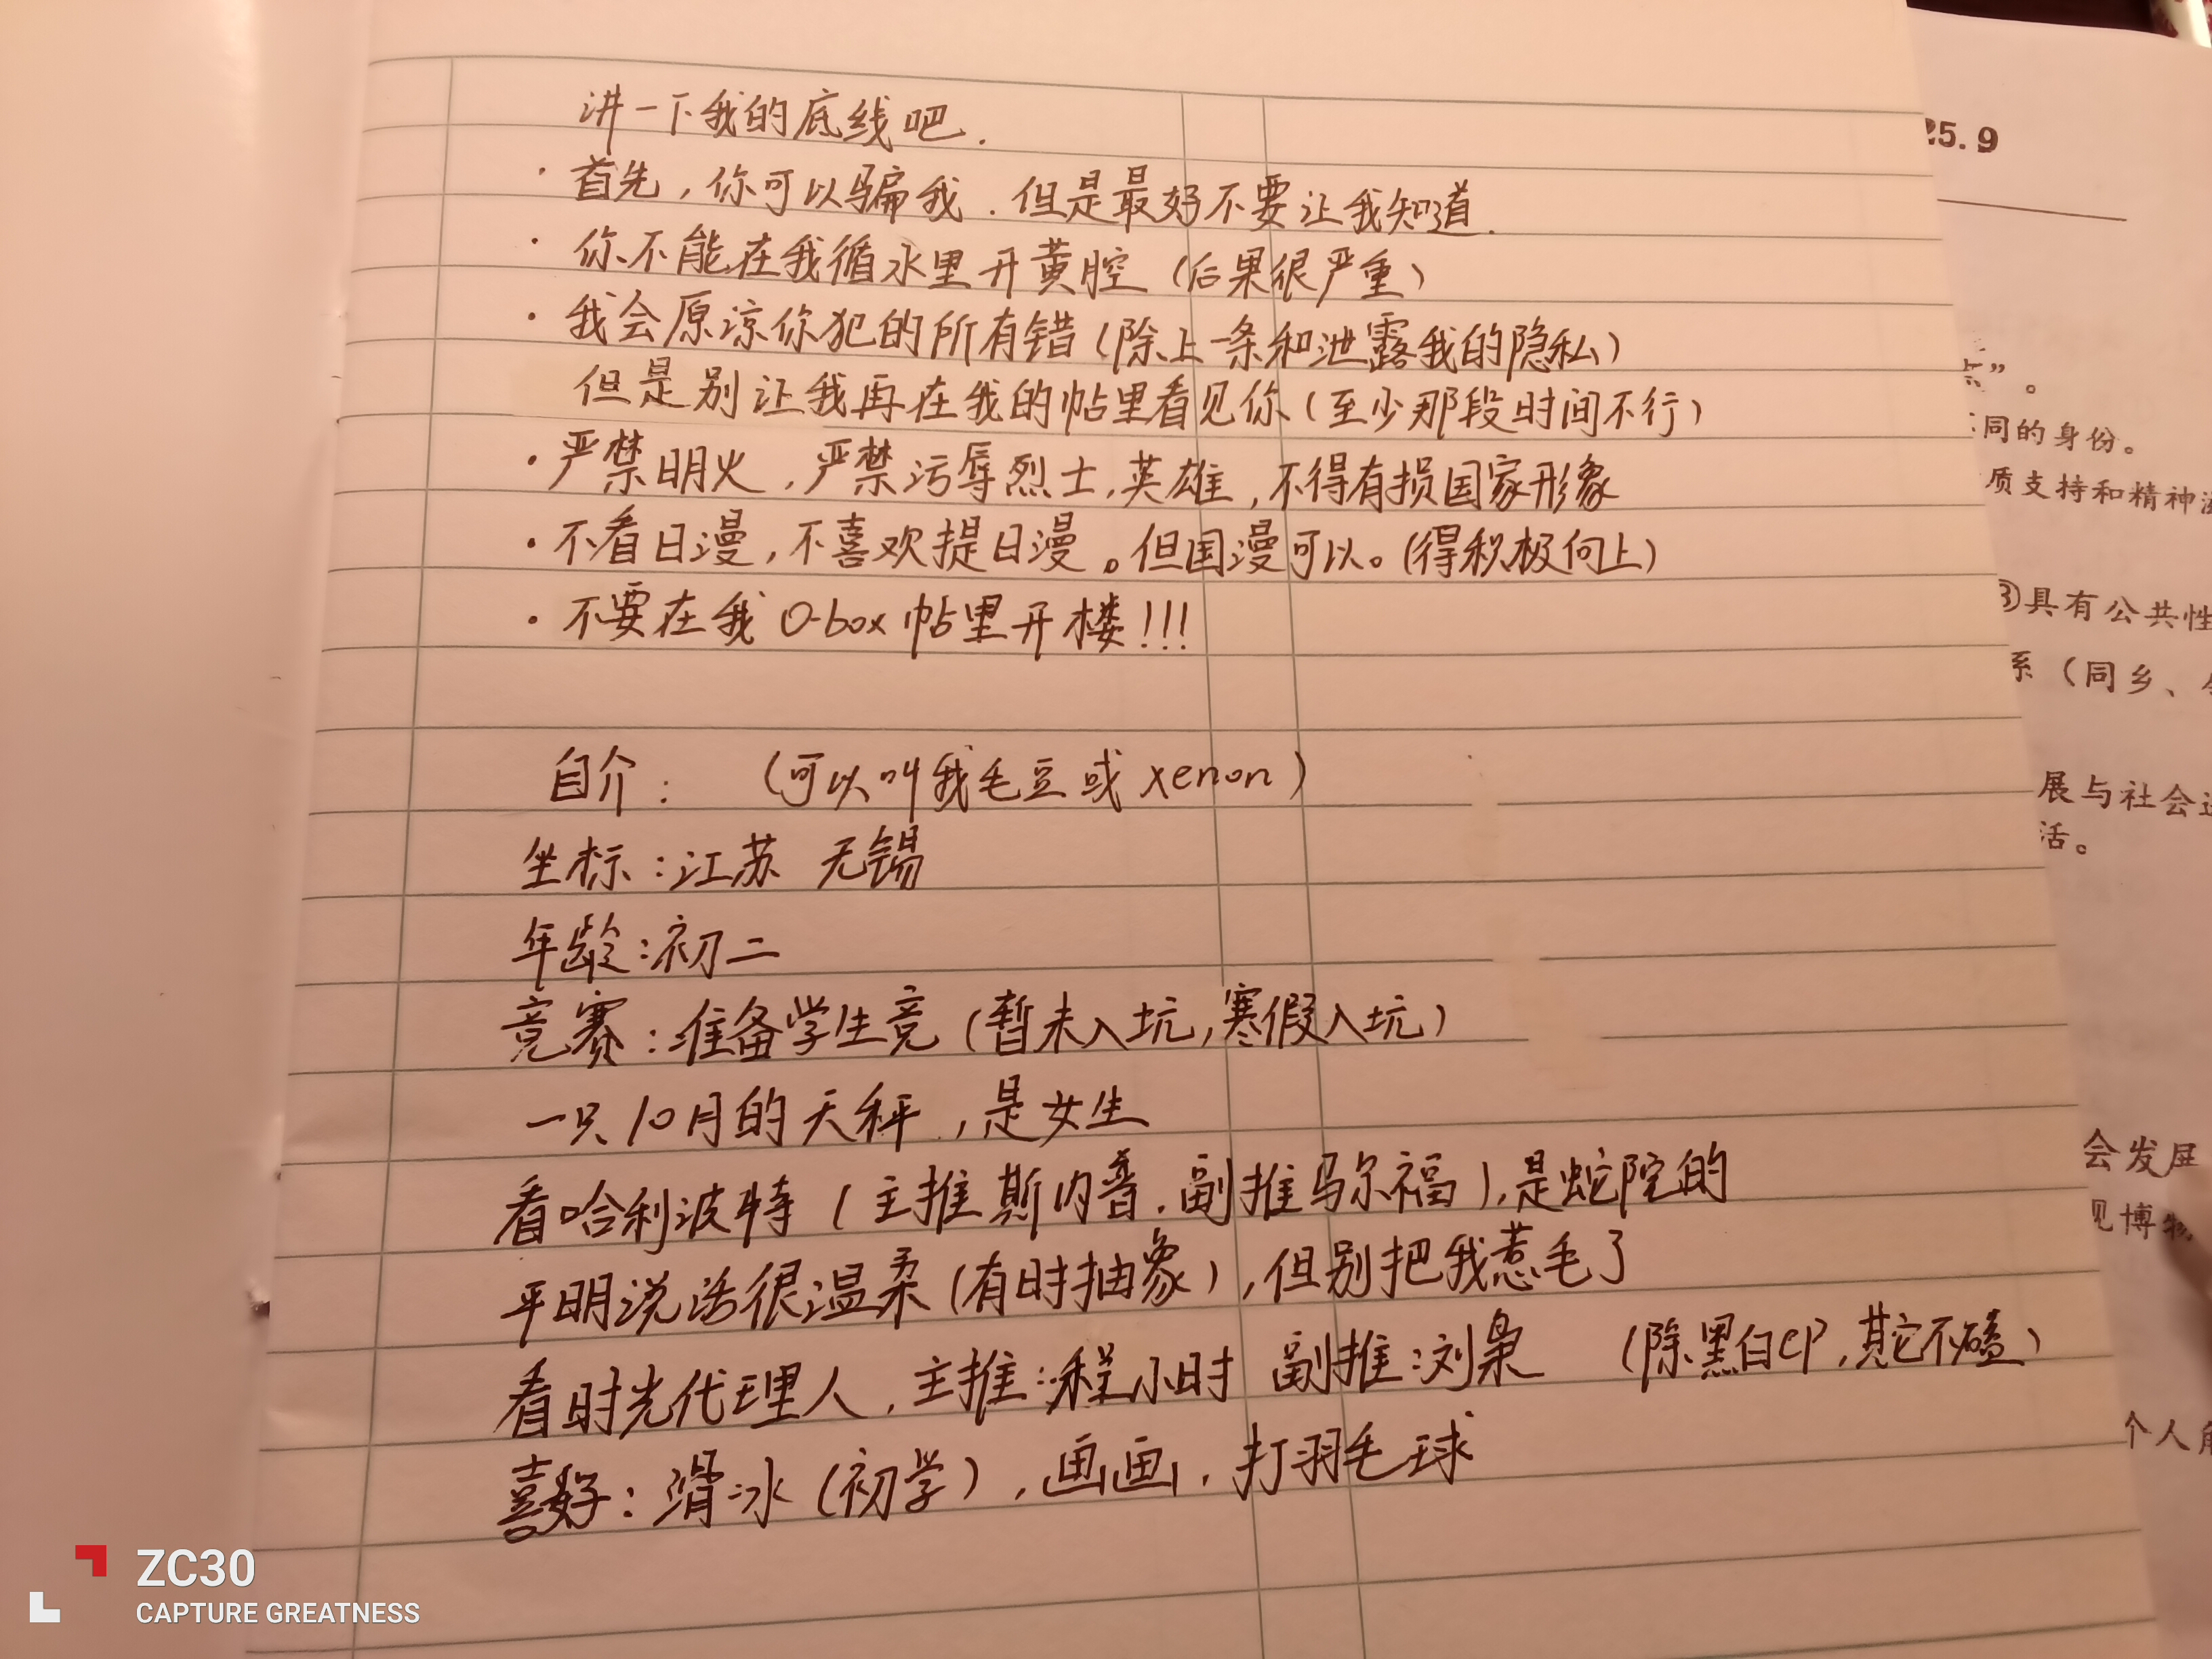 讲一下我的底线吧.
·首先,你可以骗我.但是最好不要让我知道.
·你不能在我循水里开黄腔(后果很严重)
·我会原凉你犯的所有错(除上一条和泄露我的隐私)
但是别让我再在我的帖里看见你(至少那段时间不行)
·严禁明火,严禁污辱烈士,英雄,不得有损国家形象
·不看日漫,不喜欢提日漫。但国漫可以。(得积极向上)
·不要在我O-box帖里开楼!!!
自介: (可以叫我毛豆或xenon)
坐标:江苏 无锡
年龄:初二
竞赛:准备学生竞(暂未入坑,寒假入坑)
一只10月的天秤,是女生
看哈利波特(主推斯内普.副推马尔福),是蛇院的
平明说话很温柔(有时抽象),但别把我惹毛了
看时光代理人,主推:程小时 副推:刘枭 (除黑白CP,其它不磕)
喜好:滑冰(初学),画画,打羽毛球
25.9
”。
同的身份。
质支持和精神
③具有公共性
系(同乡、
展与社会
活。
会发展
见博物
个人
ZC30
CAPTURE GREATNESS